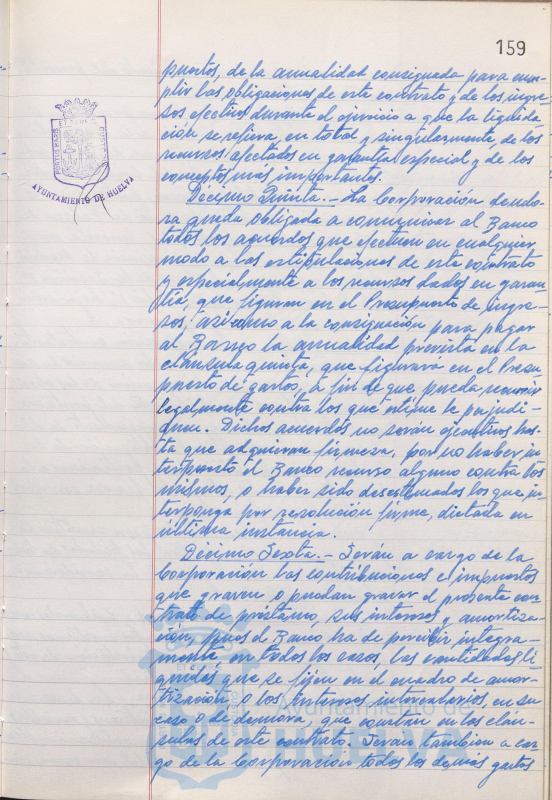 159
puestos, de la anualidad consignada para cum-
plir las obligaciones de este contrato y de los ingre-
sos efectivos durante el ejercicio a que la liquida-
ción se refiera, en total y singularmente, de los
recursos afectados en garantía especial y de los
conceptos mas importantes.
Décimo Quinta.- La Corporación deudo-
ra queda obligada a comunicar al Banco
todos los acuerdos que afecten en cualquier
modo a las estipulaciones de este contrato
y especialmente a los recursos dados en garan-
tía, que figuran en el Presupuesto de ingre-
sos, así como a la consignación para pagar
al Banco la anualidad prevista en la
cláusula quinta, que figurara en el Presu
puesto de gastos, a fin de que pueda recurrir
legalmente contra los que estime le perjudi-
quen. Dichos acuerdos no serán ejecutivos has-
ta que adquieran firmeza, por no haber in
terpuesto el Banco recurso alguno contra los
mismos, o haber sido desestimados los que in
terponga por resolución firme, dictada en
última instancia.
Decimo Sexta.- Serán a cargo de la
Corporación las contribuciones e impuestos
que graven o puedan gravar el presente con
trato de préstamo, sus intereses y amortiza-
ción, pues el Banco ha de percibir íntegra-
mente, en todos los casos, las cantidades lí
quidas que se fijen en el cuadro de amor-
tización, o los intereses intercalarios, en su
caso o de demora, que constan en las cláu-
sulas de este contrato. Serán tambien a car
go de la Corporación todos los demás gastos
AYUNTAMIENTO DE HUELVA
Ayuntamiento de
HUELVA